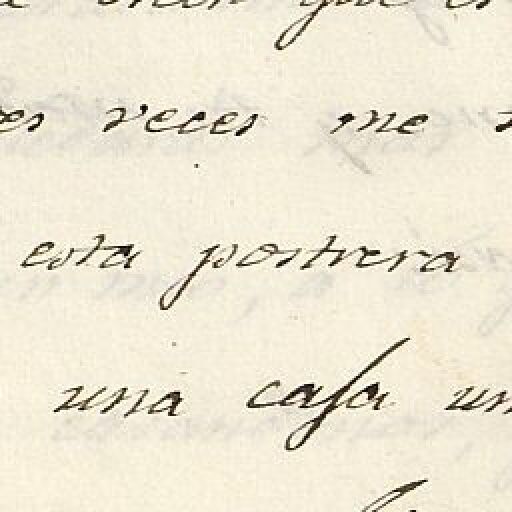 que
veces me
esta postrera
una caſa un